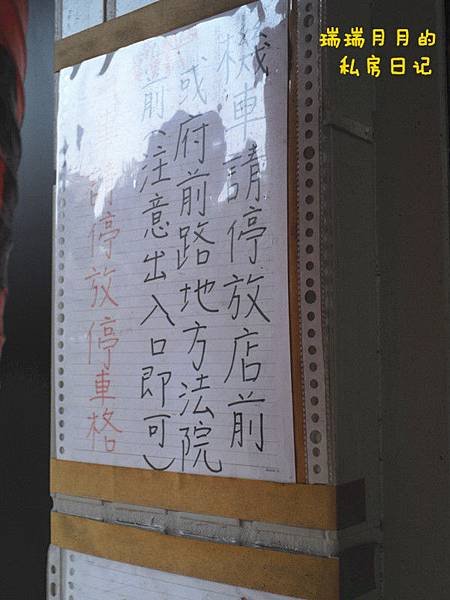 瑞瑞月月的
私房日记
機車請停放店前
或府前路地方法院
前(注意出入口即可)
車請停放停車格